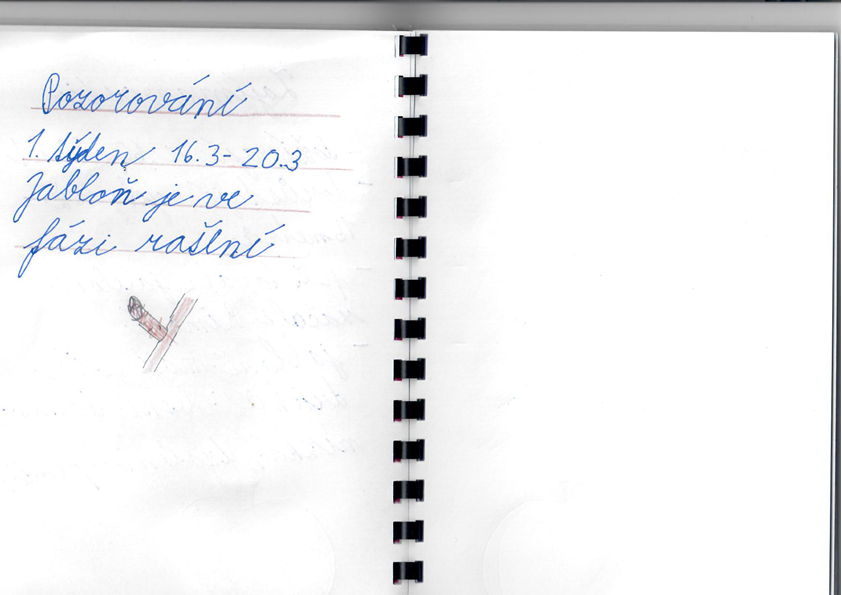 Pozorování
1. týden 16.3-20.3
Jabloň je ve
fázi rašení